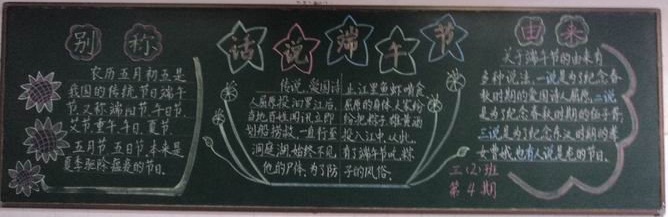 别称
农历五月初五是
我国的传统节日端午
节，又称端阳节、午日节、
艾节、重午、午日、夏节。
五月节、五日节本来是
夏季驱除瘟疫的节日。
话说端午节
传说，爱国诗
人屈原投汨罗江后，
当地百姓闻讯立即
划船捞救，一直行至
洞庭湖，始终不见
他的尸体，为了防
止江里鱼虾啃食
屈原的身体，人家纷
纷把粽子、雄黄酒
投入江中，从此，
有了端午节吃粽
子的风俗。
由来
关于端午节的由来有
多种说法，一说是为了纪念春
秋时期的爱国诗人屈原，二说
是为了纪念春秋时期的伍子胥，
三说是为了纪念东汉时期的孝
女曹娥，也有人说是龙的节日。
三(2)班
第4期